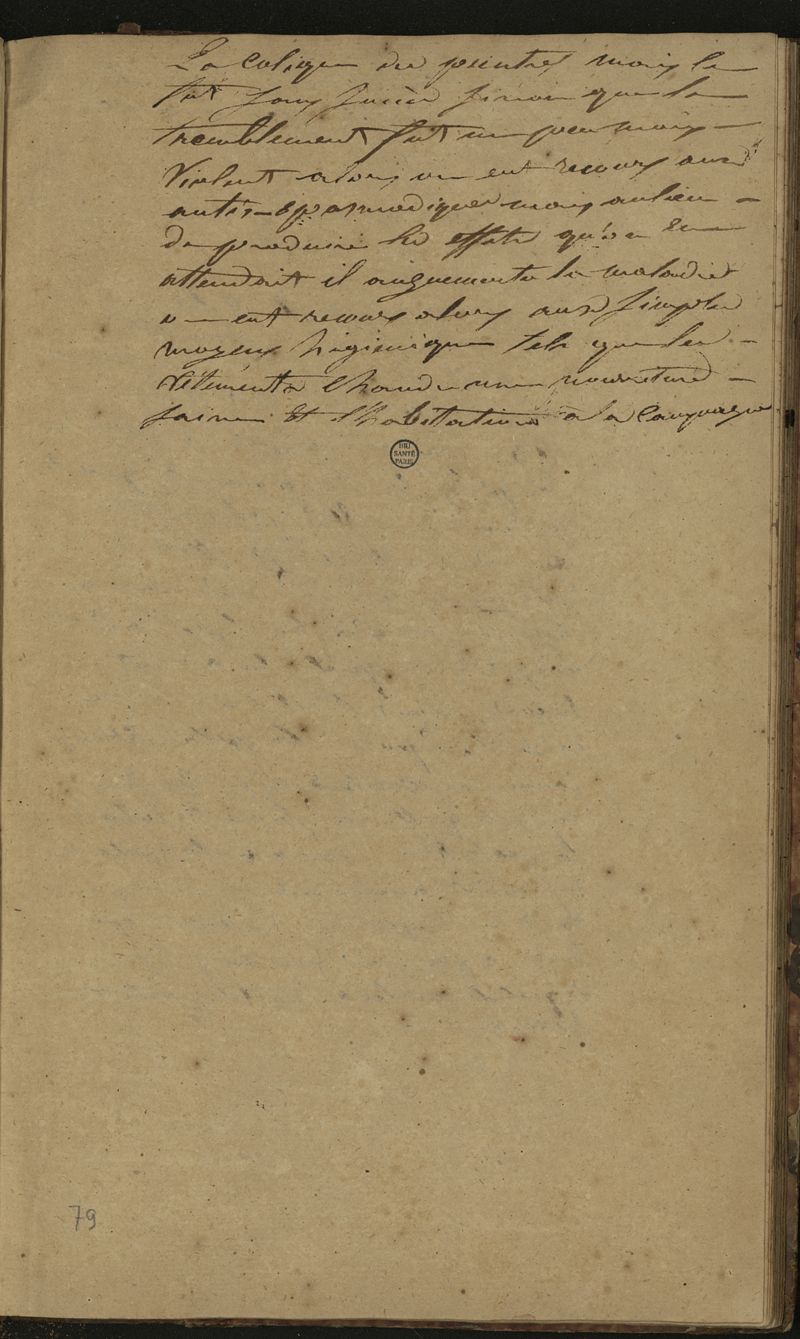 La colique des peintres mais ce
fut sans succès sinon que le
tremblement fut un peu moins
violent alors on eut recours aux
antis-spasmodiques mais au lieu
de produire les effets qu'on en
attendait il augmenta la maladie
on eut recours alors aux simples
moyens higiéniques tels que les
vêtements chauds une nourriture
saine et l'habitation à la campagne
BIU
SANTÉ
PARIS
79